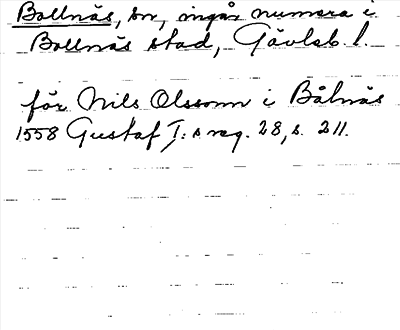 Bollnäs, sn, ingår numera i
Bollnäs stad, Gävleb. l.
för Nils Olssonn i Bålnäs
1558 Gustaf I:s reg. 28, s. 211.